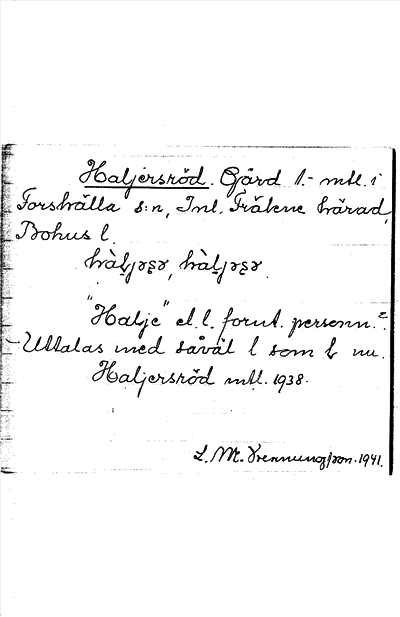 Haljersröd. Gård 1.- mtl. i
Forshälla s:n, Inl. Fräkne härad,
Bohus l.
"Halje" el. l. fornt. personn.?
Uttalas med såväl l som ł nu.
Haljersröd mtl. 1938.
L. M. 1941.